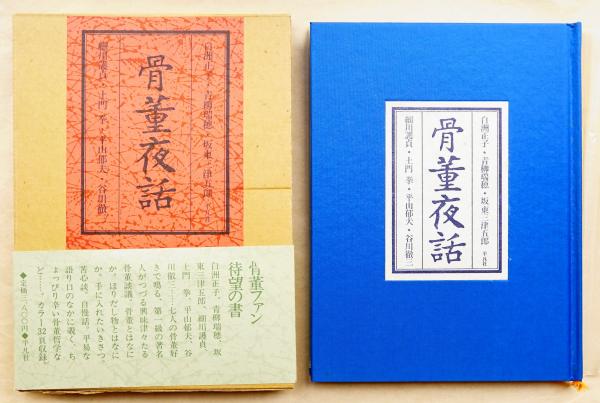 白洲正子・青柳瑞穂・坂東三津五郎
骨董夜話
細川護貞・土門 拳・平山郁夫・谷川徹
骨董ファン
待望の書
白洲正子、青柳瑞穂、坂
東三津五郎、細川護貞、
土門 拳、平山郁夫、谷
川徹三……七人の骨董好
きで鳴る、第一級の著名
人がつづる興味津々たる
骨董談議。骨董とはなに
か。ほりだし物とはなに
か。手に入れたいきさつ。
苦心談、自慢話。平易な
語り口のなかに覗く、ち
ょっぴり辛い骨董哲学な
ど……。カラー32頁収録。
◆定価一八〇〇円◆平凡社
白洲正子・青柳瑞穂・坂東三津五郎 平凡社
骨董夜話
細川護貞・土門 拳・平山郁夫・谷川徹三